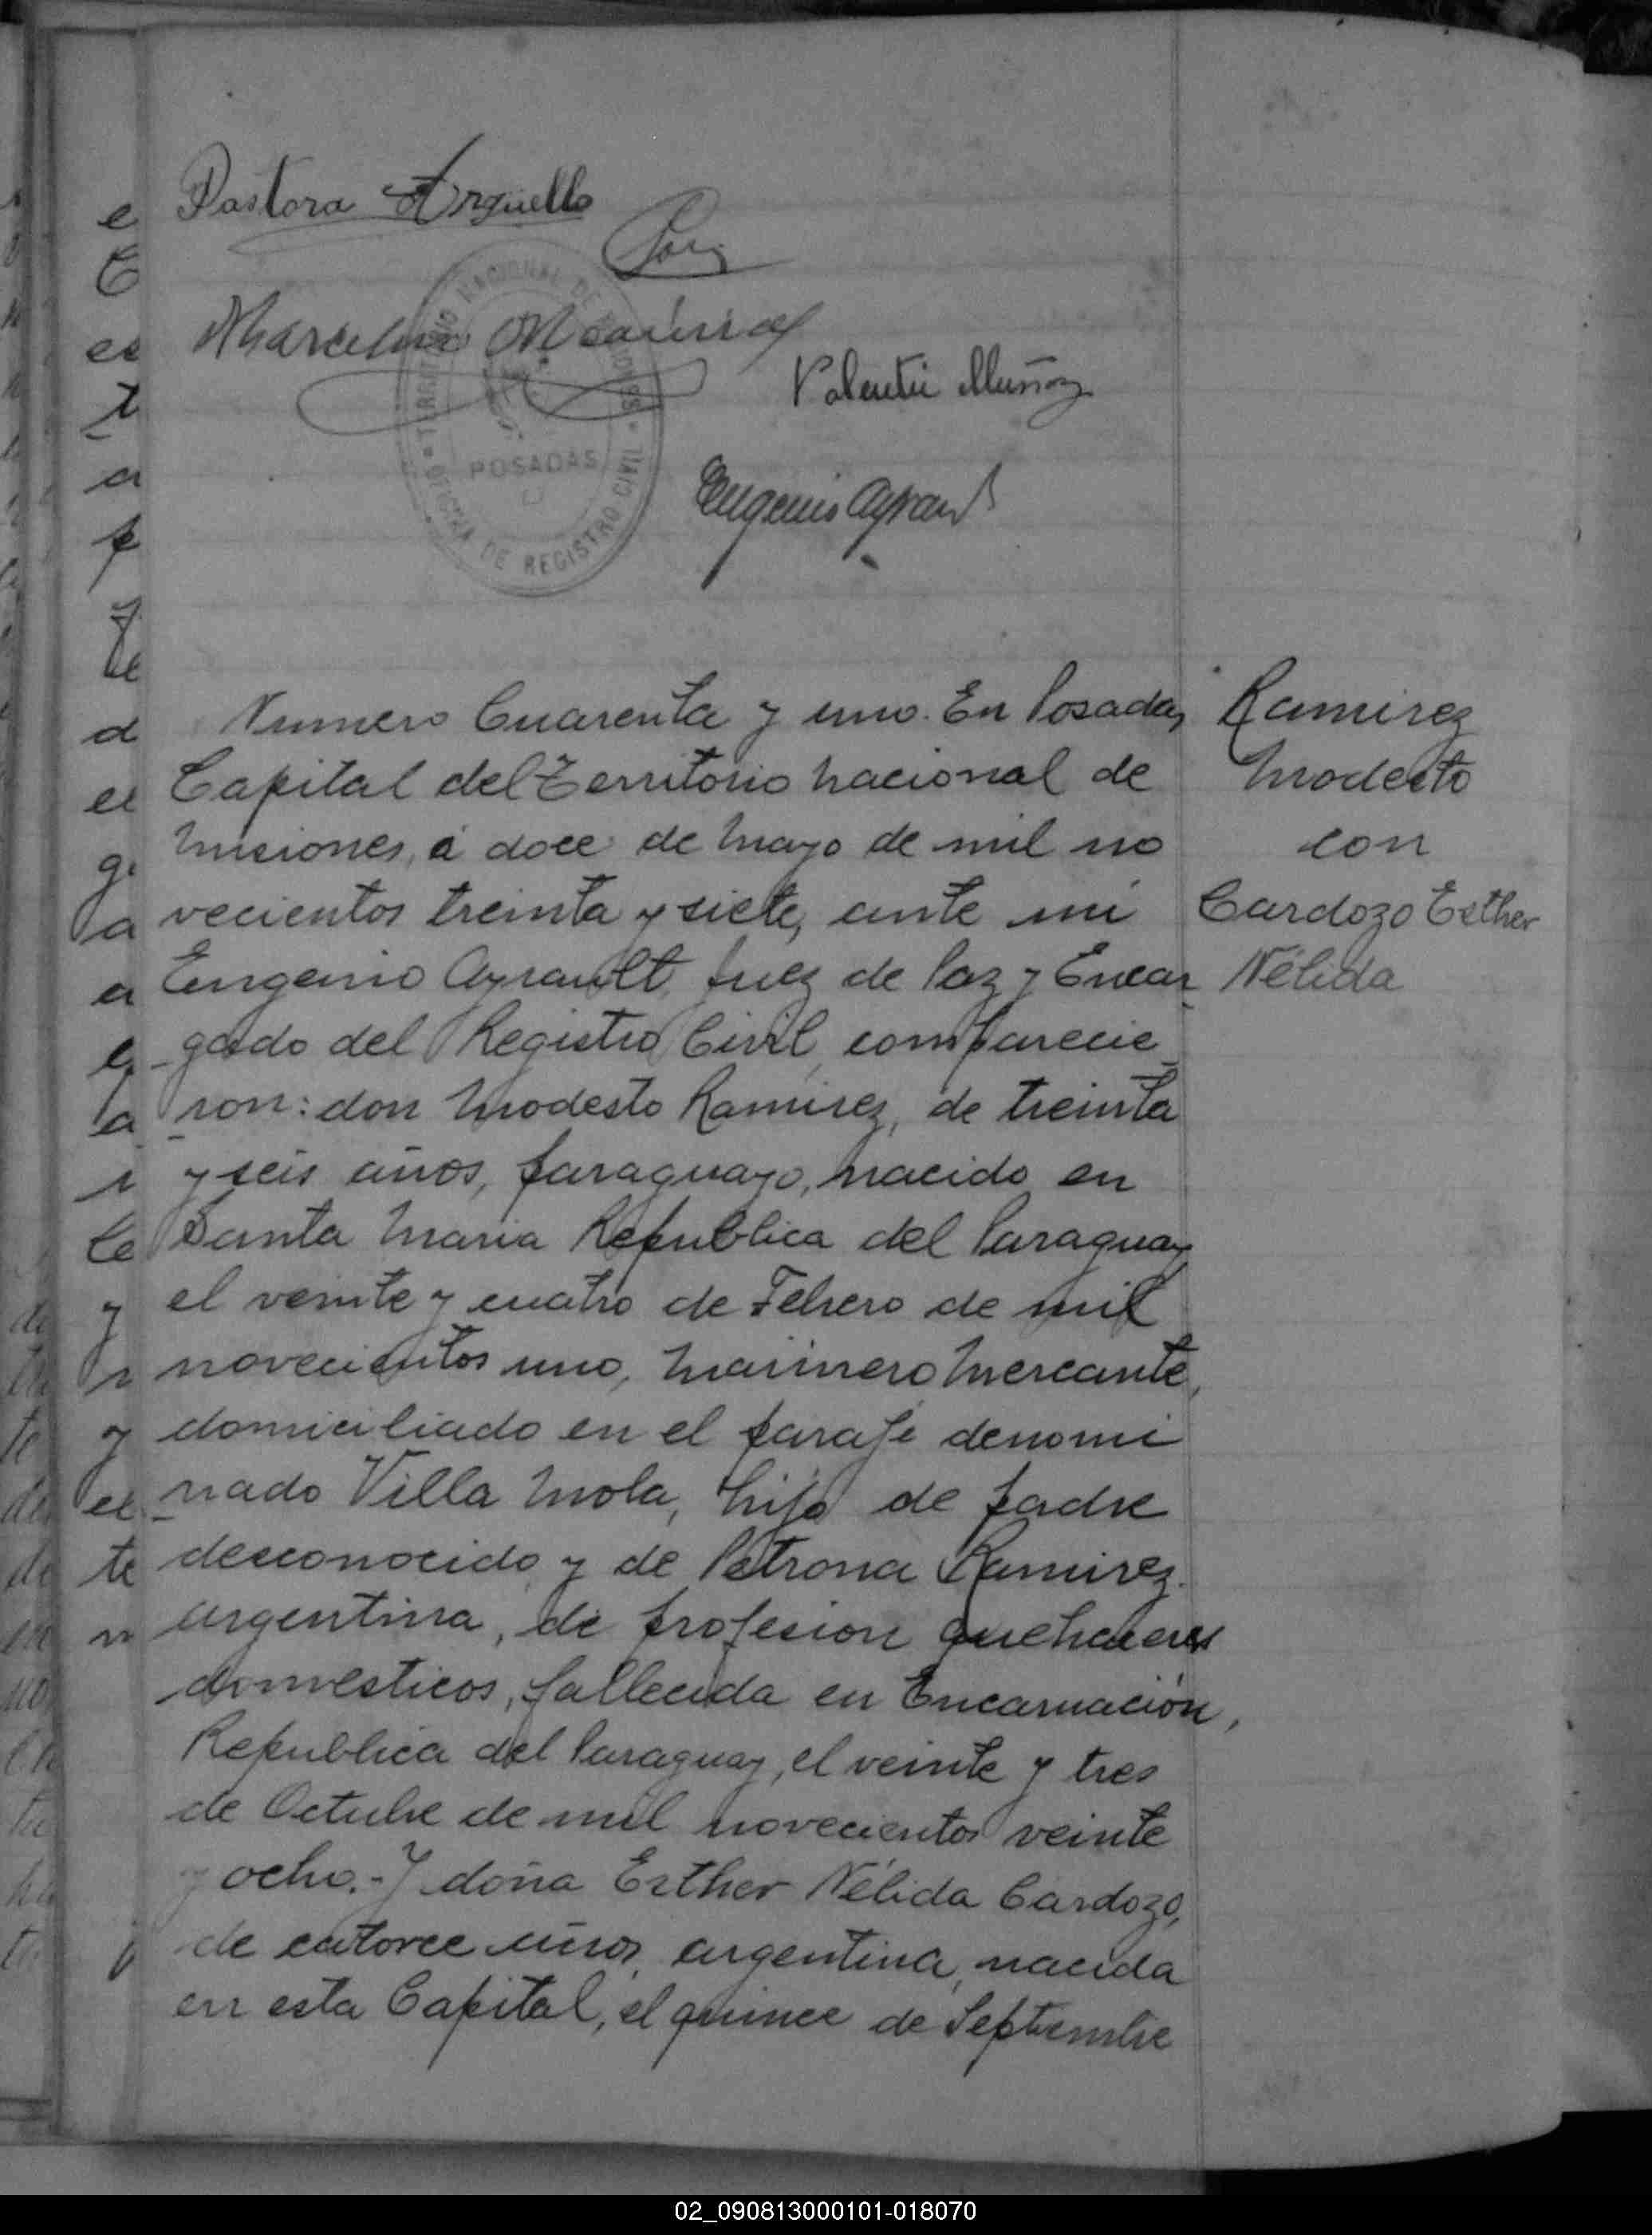 Pastora Argüello
Valentin Muñoz
TERRITORIO NACIONAL DE MISIONES
POSADAS
OFICINA DE REGISTRO CIVIL
Eugenio Ayrault
Numero Cuarenta y uno. En Posadas,
Capital del Territorio Nacional de
Misiones, á doce de Mayo de mil no
vecientos treinta y siete, ante mi
Eugenio Ayrault, Juez de Paz y Encar
gado del Registro Civil, comparecie
ron: don Modesto Ramirez, de treinta
y seis años, paraguayo, nacido en
Santa Maria Republica del Paraguay
el veinte y cuatro de Febrero de mil
novecientos uno, Marinero Mercante,
domiciliado en el paraje denomi
nado Villa Mola, hijo de padre
desconocido y de Petrona Ramirez.
argentina, de profesion quehaceres
domesticos, fallecida en Encarnación,
Republica del Paraguay, el veinte y tres
de Octubre de mil novecientos veinte
y ocho.- Y doña Esther Nélida Cardozo,
de catorce años, argentina, nacida
en esta Capital, el quince de Septiembre
Ramirez
Modesto
con
Cardozo Esther
Nélida
02_090813000101-018070